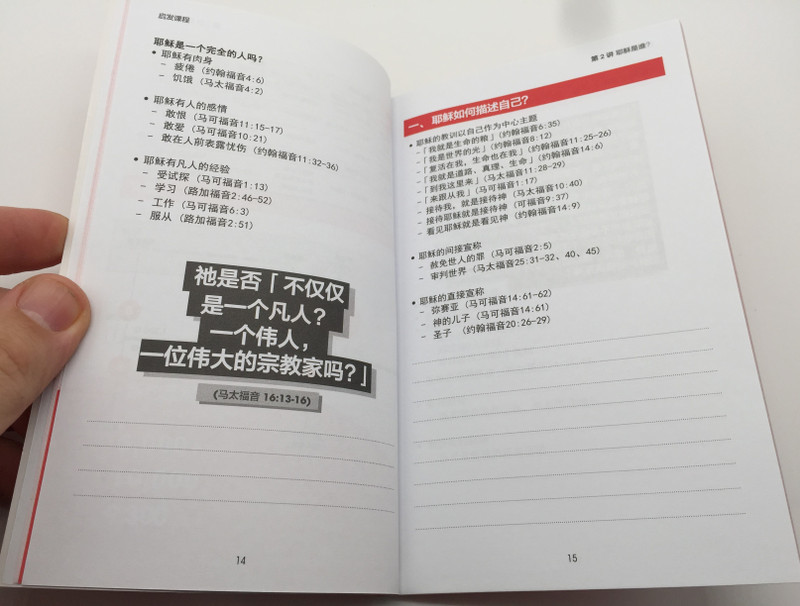 启发课程
耶稣是一个完全的人吗？
• 耶稣有肉身
– 疲倦（约翰福音4:6）
– 饥饿（马太福音4:2）
• 耶稣有人的感情
– 敢恨（马可福音11:15-17）
– 敢爱（马可福音10:21）
– 敢在人前表露忧伤（约翰福音11:32-36）
• 耶稣有凡人的经验
– 受试探（马可福音1:13）
– 学习（路加福音2:46-52）
– 工作（马可福音6:3）
– 服从（路加福音2:51）
祂是否「不仅仅
是一个凡人？
一个伟人，
一位伟大的宗教家吗？」
（马太福音 16:13-16）
14
第 2 讲 耶稣是谁？
一、耶稣如何描述自己？
• 耶稣的教训以自己作为中心主题
–「我就是生命的粮」（约翰福音6:35）
–「我是世界的光」（约翰福音8:12）
–「复活在我，生命也在我」（约翰福音11:25-26）
–「我就是道路、真理、生命」（约翰福音14:6）
–「到我这里来」（马太福音11:28-29）
–「来跟从我」（马可福音1:17）
– 接待我，就是接待神（马太福音10:40）
– 接待耶稣就是接待神（可福音9:37）
– 看见耶稣就是看见神（约翰福音14:9）
• 耶稣的间接宣称
– 赦免世人的罪（马可福音2:5）
– 审判世界（马太福音25:31-32、40、45）
• 耶稣的直接宣称
– 弥赛亚（马可福音14:61-62）
– 神的儿子（马可福音14:61）
– 圣子 （约翰福音20:26-29）
15